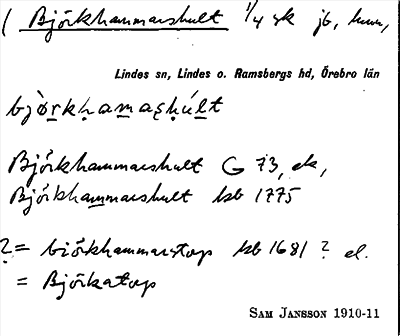 ( Björkhammarshult 1/4 sk jb, hmn,
Lindes sn, Lindes o. Ramsbergs hd, Örebro län
bjò̱rkḥama̱ṣḥúḻt
Björkhammarshult G 73, ek,
Björkhammarshult kb 1775
? = biörkhammarstorp kb 1681 ? el.
= Björkatorp
Sam Jansson 1910-11